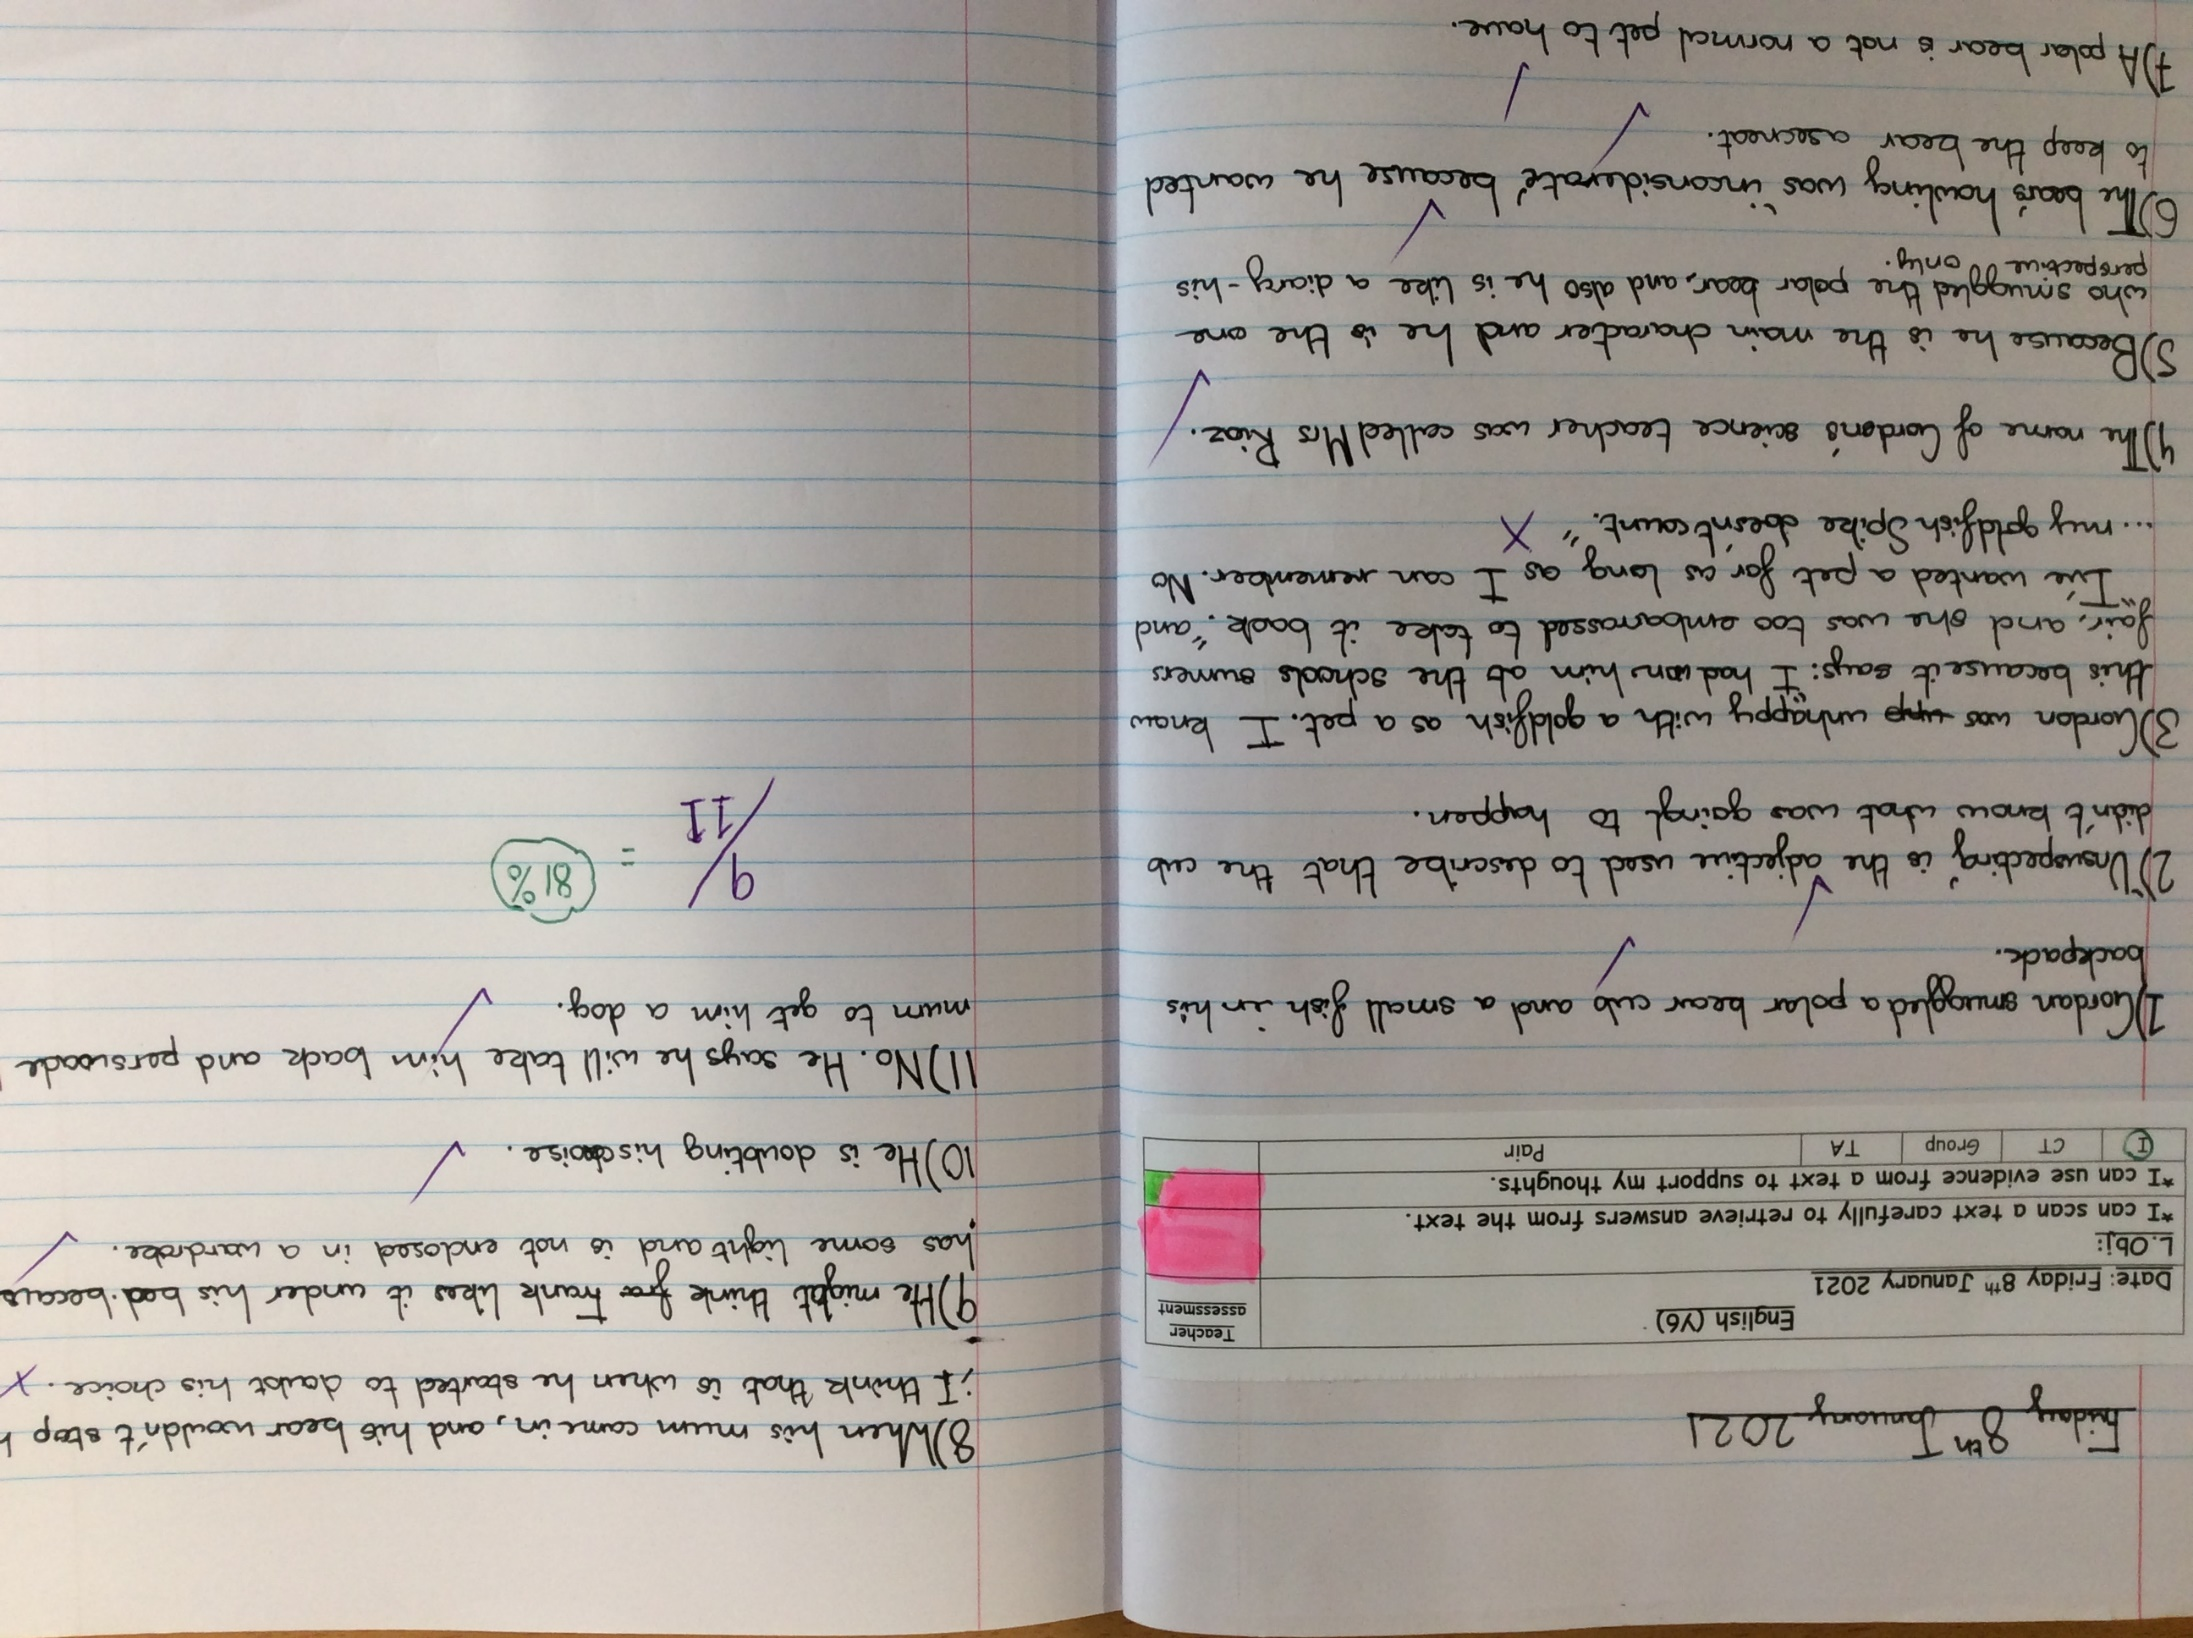 Friday 8th January 2021
English (Y6)
Teacher assessment
Date: Friday 8th January 2021
L.Obj:
*I can scan a text carefully to retrieve answers from the text.
*I can use evidence from a text to support my thoughts.
I CT Group TA Pair
1) Gordan smuggled a polar bear cub and a small fish in his
backpack.
2) "Unsuspecting" is the adjective used to describe that the cub
didn't know what was goingt to happen.
3) Gordon was upp unhappy with a goldfish as a pet. I know
this because it says: "I had won him at the schools sumers
fair, and she was too embarrassed to take it back." and
"I've wanted a pet for as long as I can remember. No
...my goldfish Spike doesn't count." X
4) The name of Gordon's science teacher was called Mrs Riaz.
5) Because he is the main character and he is the one
who smuggled the polar bear, and also he is like a diary - his
perspective only.
6) The bear's howling was "inconsiderate" because he wanted
to keep the bear a secreat.
7) A polar bear is not a normal pet to have.
8) When his mum came in, and his bear wouldn't stop h
; I think that is when he started to doubt his choice. X
9) He might think fra Frank likes it under his bed. becaus
has some light and is not enclosed in a wardrobe.
10) He is doubting his choise.
11) No. He says he will take him back and persuade
mum to get him a dog.
9/11 = 81%